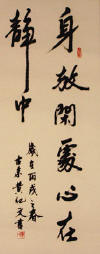 身放閑處心在
靜中
歲在丙戌之春
古東黄紀文書